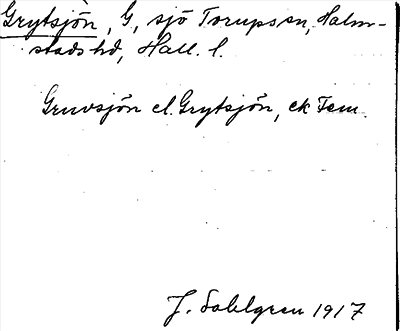 Grytsjön, G, sjö Torups sn, Halm-
stads hd, Hall. l.
Gruvsjön el. Grytsjön, ek Tem.
J. Sahlgren 1917